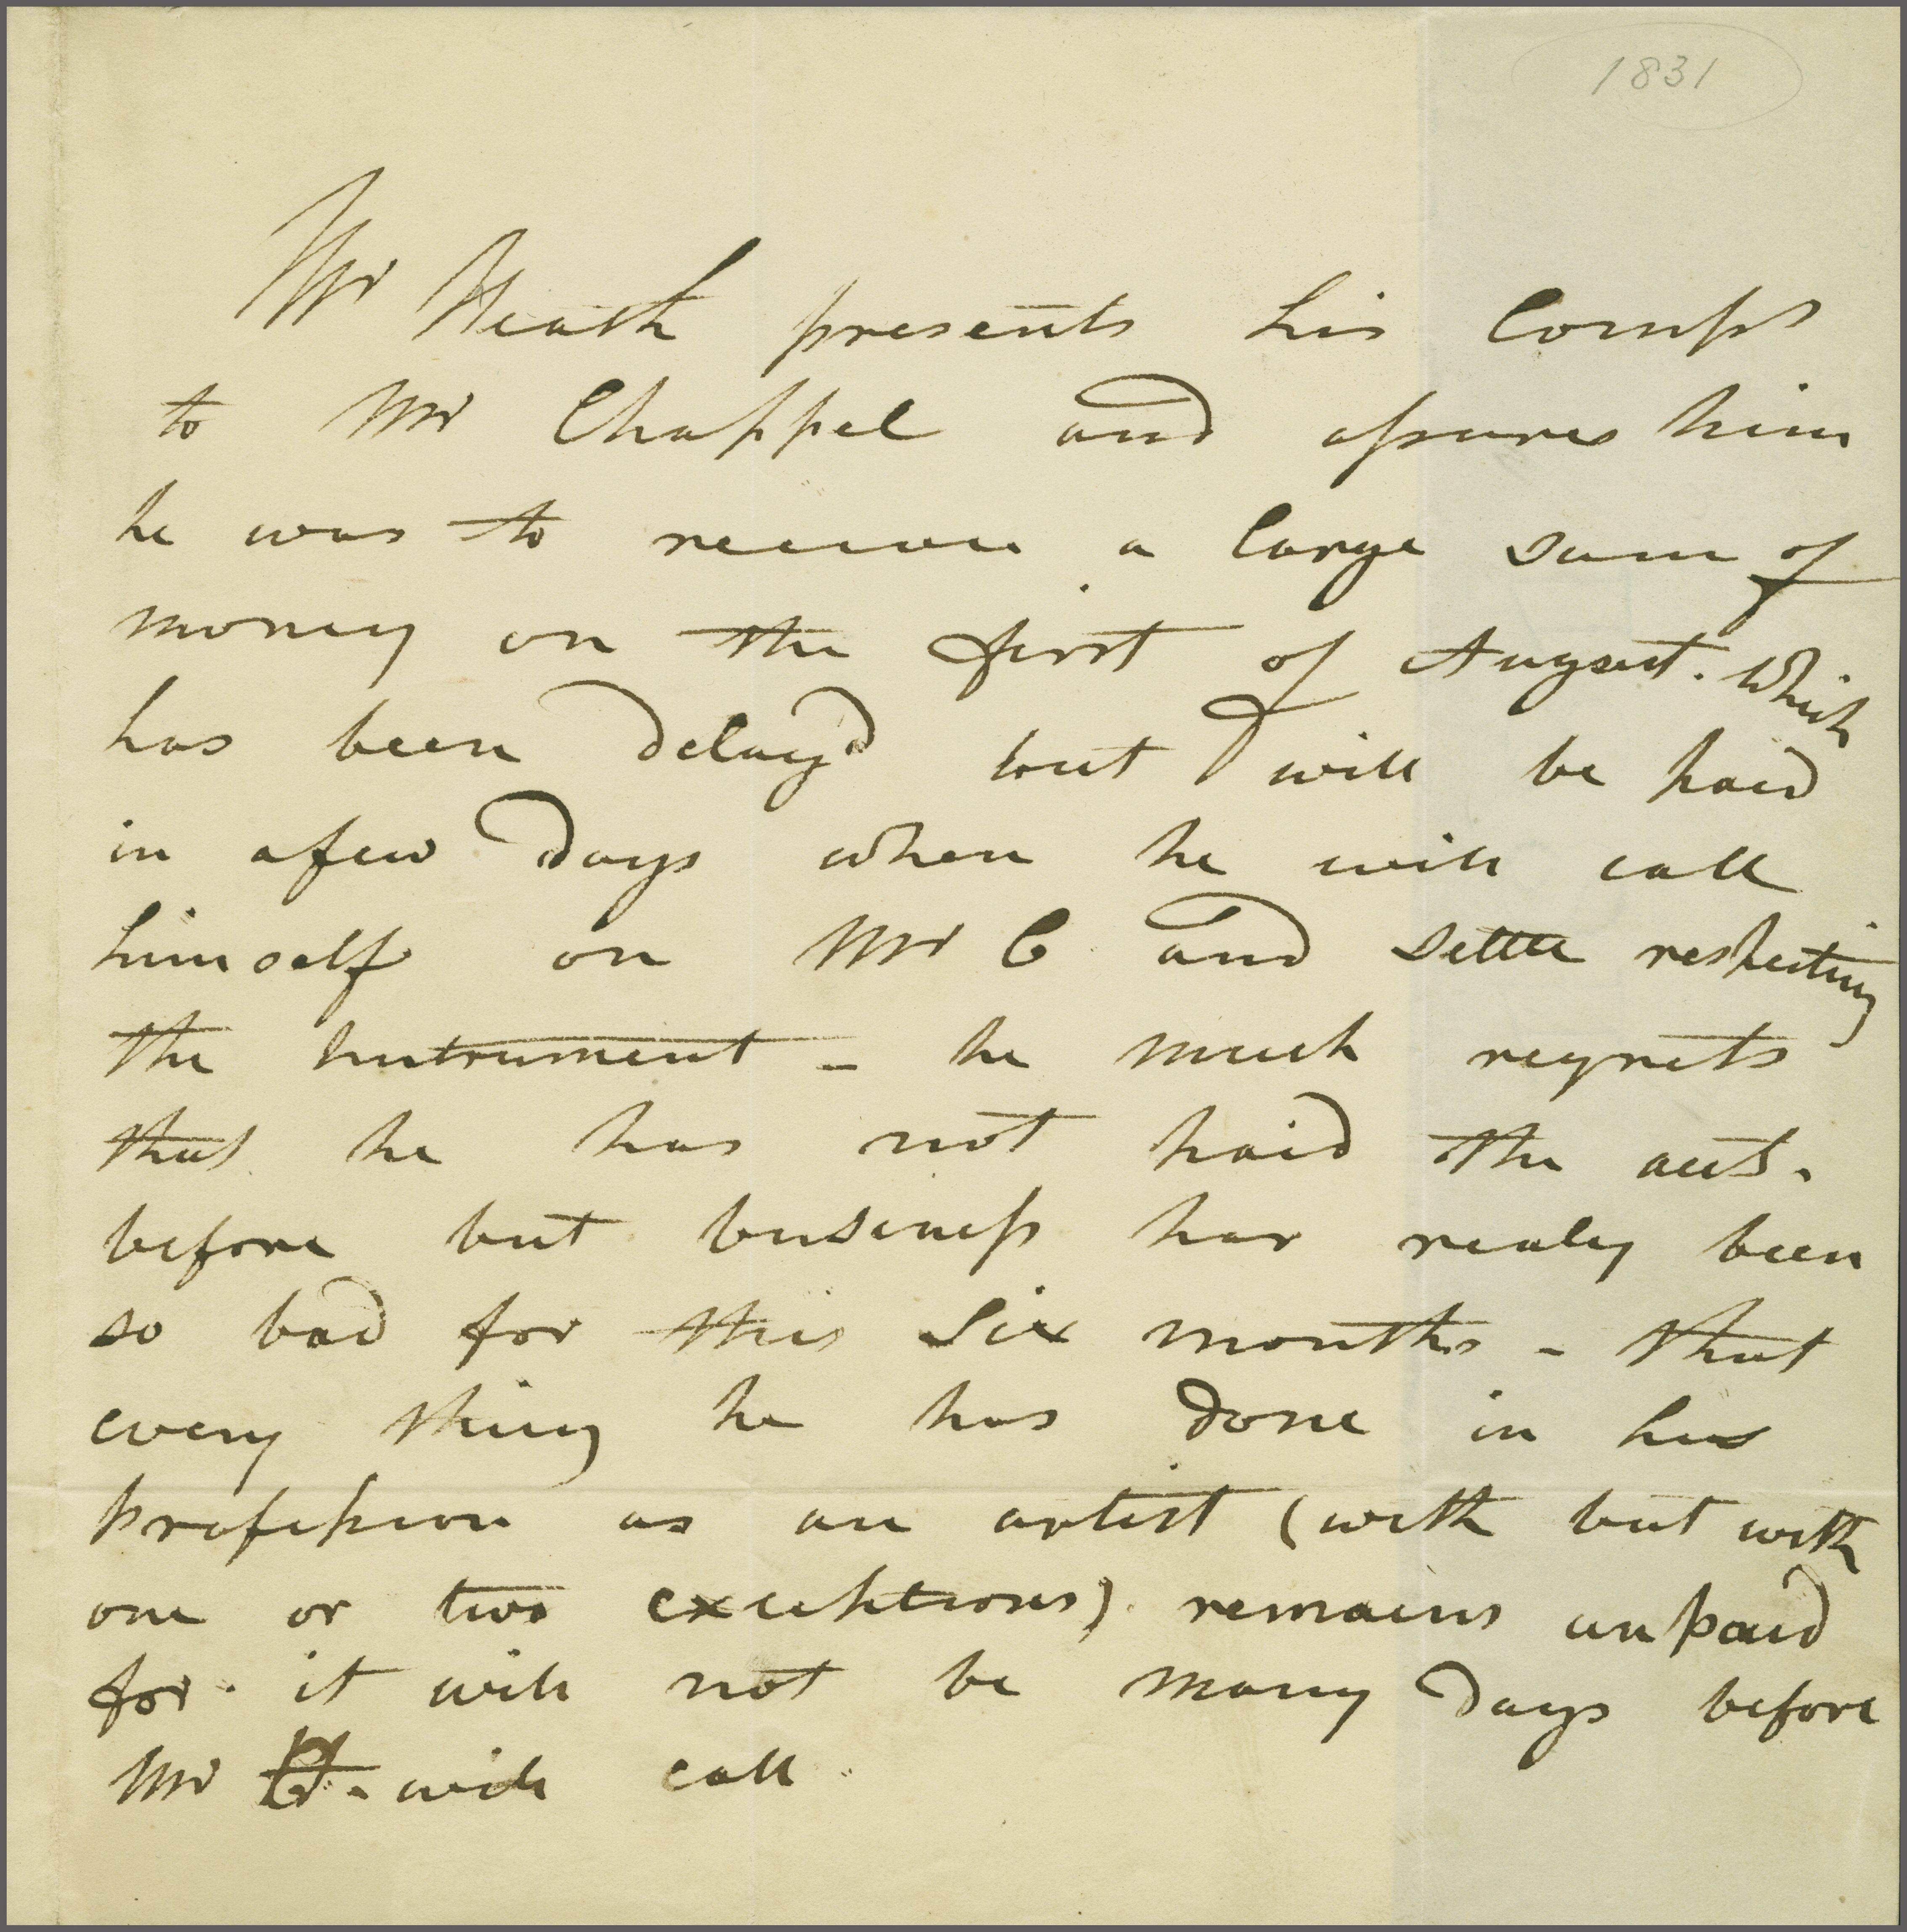 1831
Mr Heath presents his Comps
to Mr Chappel and assures him
he was to receive a large sum of
money on the first of August. which
has been delayd but will be paid
in a few days when he will call
himself on Mr C and settle respecting
the Instrument - he much regrets
that he has not paid the acct.
before but business has realy been
so bad for this six months - that
every thing he has done in his
profession as an artist (with but with
one or two exceptions) remains unpaid
for. it will not be many days before
Mr H. will call.